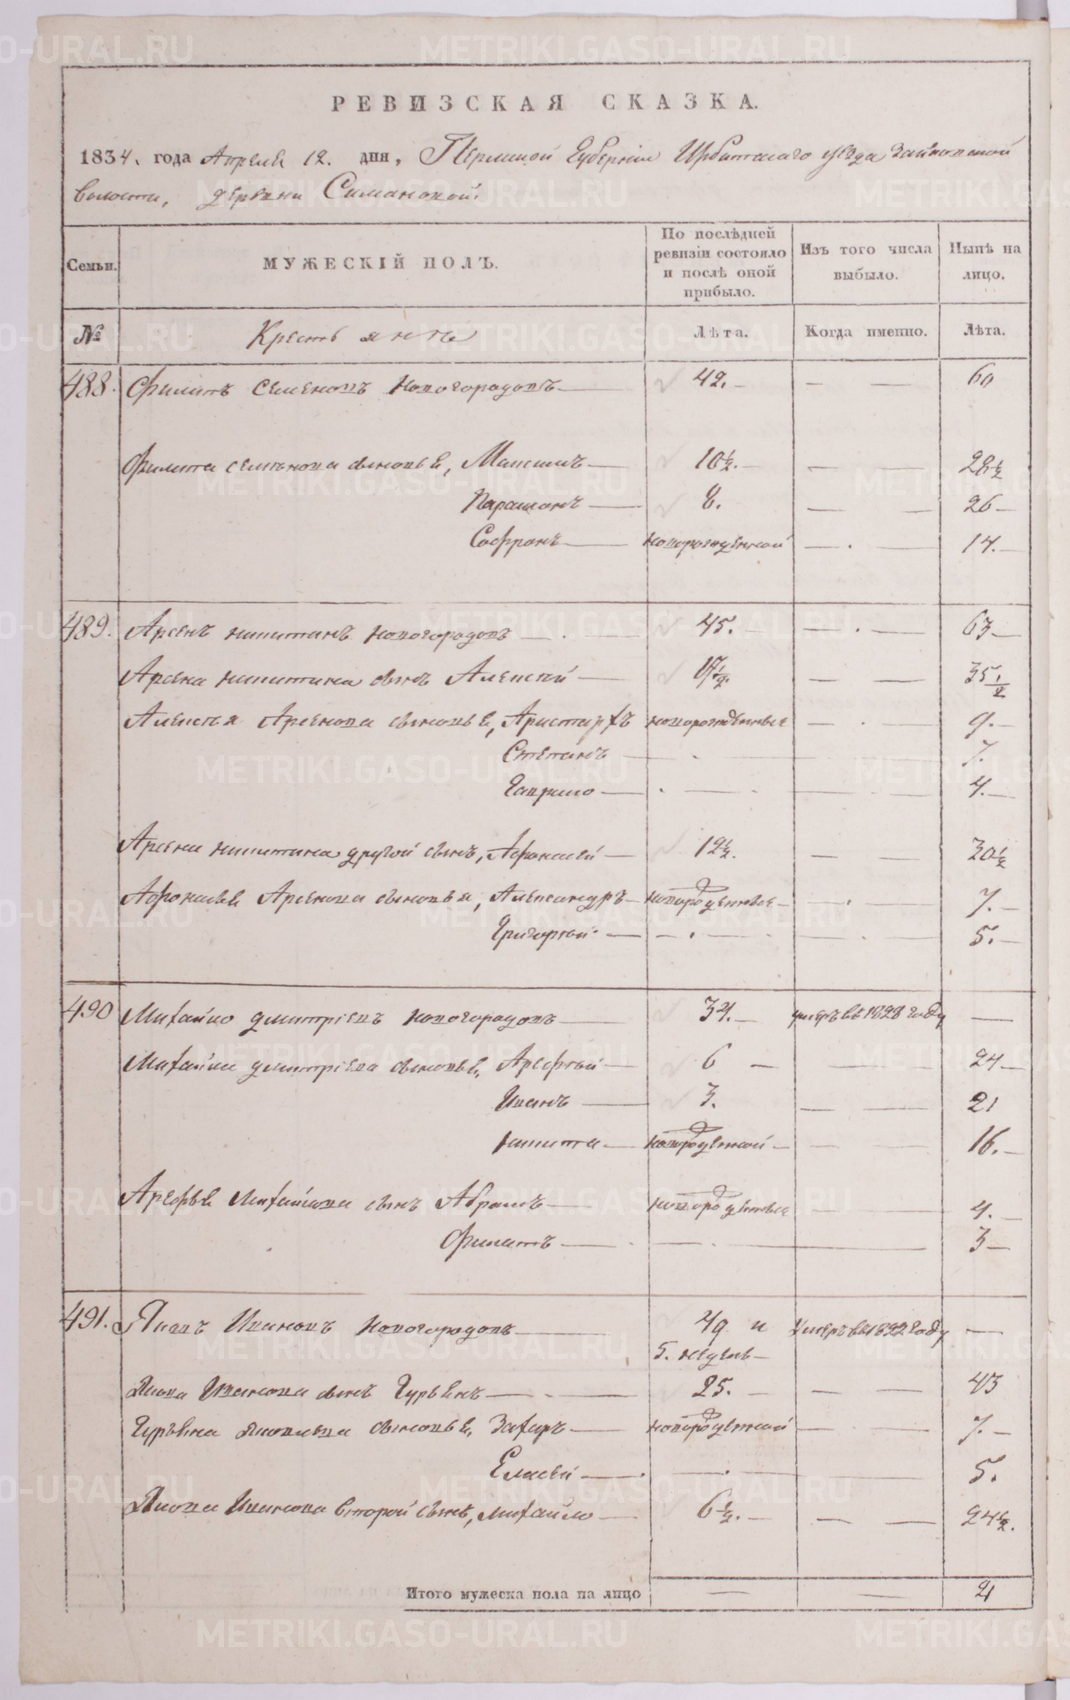 РЕВИЗСКАЯ СКАЗКА.
1834. года Апреля 12. дня, Пермской Губернии Ирбитскаго уѣзда Зайковской
волости, деревни Симановой.
Семьи. МУЖЕСКІЙ ПОЛЪ. По послѣдней ревизіи состояло и послѣ оной прибыло. Изъ того числа выбыло. Нынѣ на лицо.
№ Крестьяне Лѣта. Когда именно. Лѣта.
488. Филатъ Семеновъ Новогородовъ — 42. — — — 60
Филата Семенова сыновья, Максимъ — 10½. — — — 28½
Парамонъ — 8. — — 26 —
Софронъ — новорожденной — . — 14. —
489. Арсенъ Никитинъ Новогородовъ — . — 45. — — . — 63 —
Арсена Никитина сынъ Алексей — 17½. — — 35½
Алексея Арсенова сыновья, Аристархъ новорожденные — . — 9. —
Степанъ — . — — — 7.
Гаврило — . — . — — 4. —
Арсена Никитина другой сынъ, Афонасей — 12½. — — 30½
Афонасья Арсенова сыновья, Александръ — новорожденные — — . — 7. —
Григорей — — . — — — 5. —
490 Михайло Дмитріевъ Новогородовъ — 34. — умеръ въ 1828 году —
Михайла Дмитріева сыновья, Арефей — 6 — — — 24 —
Иванъ — 3. — — 21
Никита — новорожденной — — — 16. —
Арефья Михайлова сынъ Абрамъ — новорожденные — 4. —
Филатъ — . — . — — 3 —
491. Яковъ Ивановъ Новогородовъ — 49 и умеръ въ 1822 году —
5. недель —
Якова Иванова сынъ Гурьянъ — . — 25. — — — 43
Гурьяна Яковлева сыновья, Захаръ — новорожденной — — 7. —
Елисей — . — . — — 5.
Якова Иванова второй сынъ, Михайло — 6½. — — — 24½.
Итого мужеска пола на лицо — — 21
METRIKI.GASO-URAL.RU